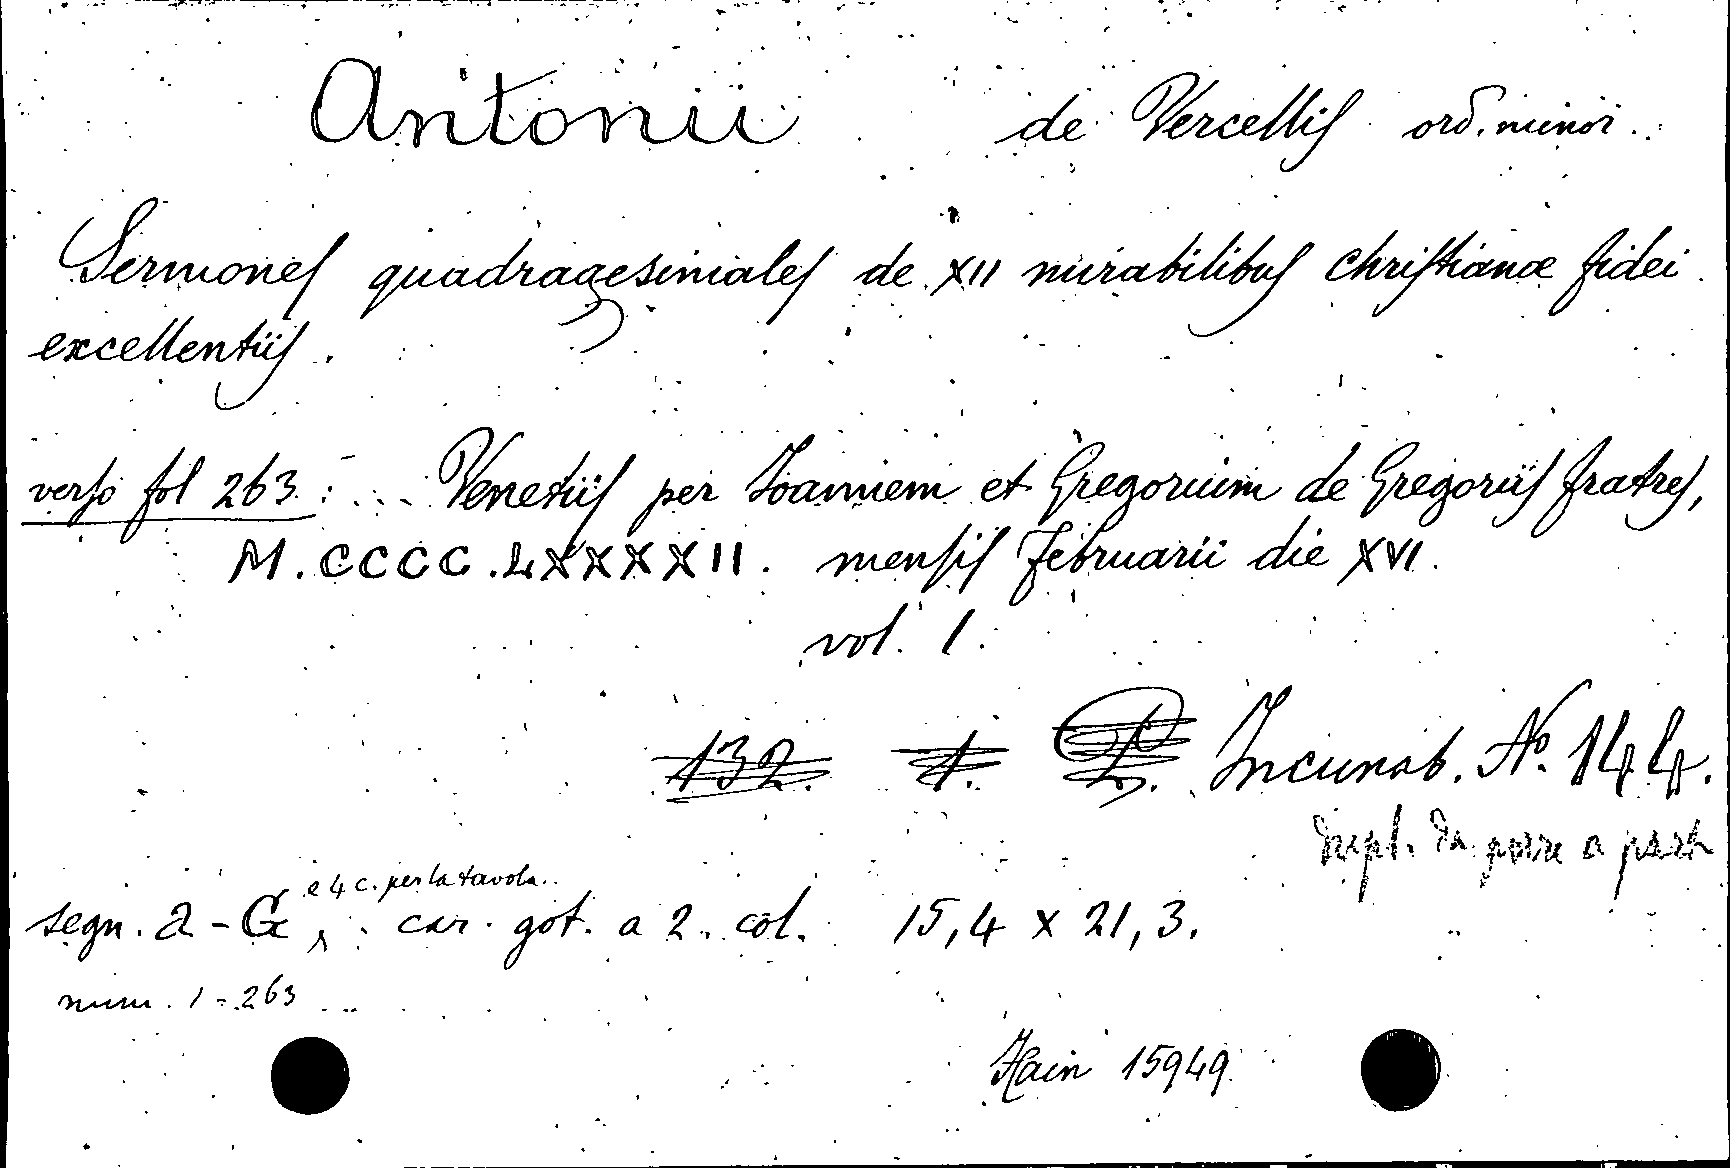 Antonii de Vercellis ord. minor.
Sermones quadragesimales de XII mirabilibus christianæ fidei
excellentiis.
verso fol 263: ... Venetiis per Joannem et Gregorium de Gregoriis fratres,
M.CCCC.LXXXXII. mensis Februarii die XVI.
vol. 1.
132. 1. Incunab. No. 144.
dupl. da porre a parte
e 4 c. per la tavola.
segn. a - G, car. got. a 2. col. 15,4 x 21,3.
num. 1-263
Hain 15949